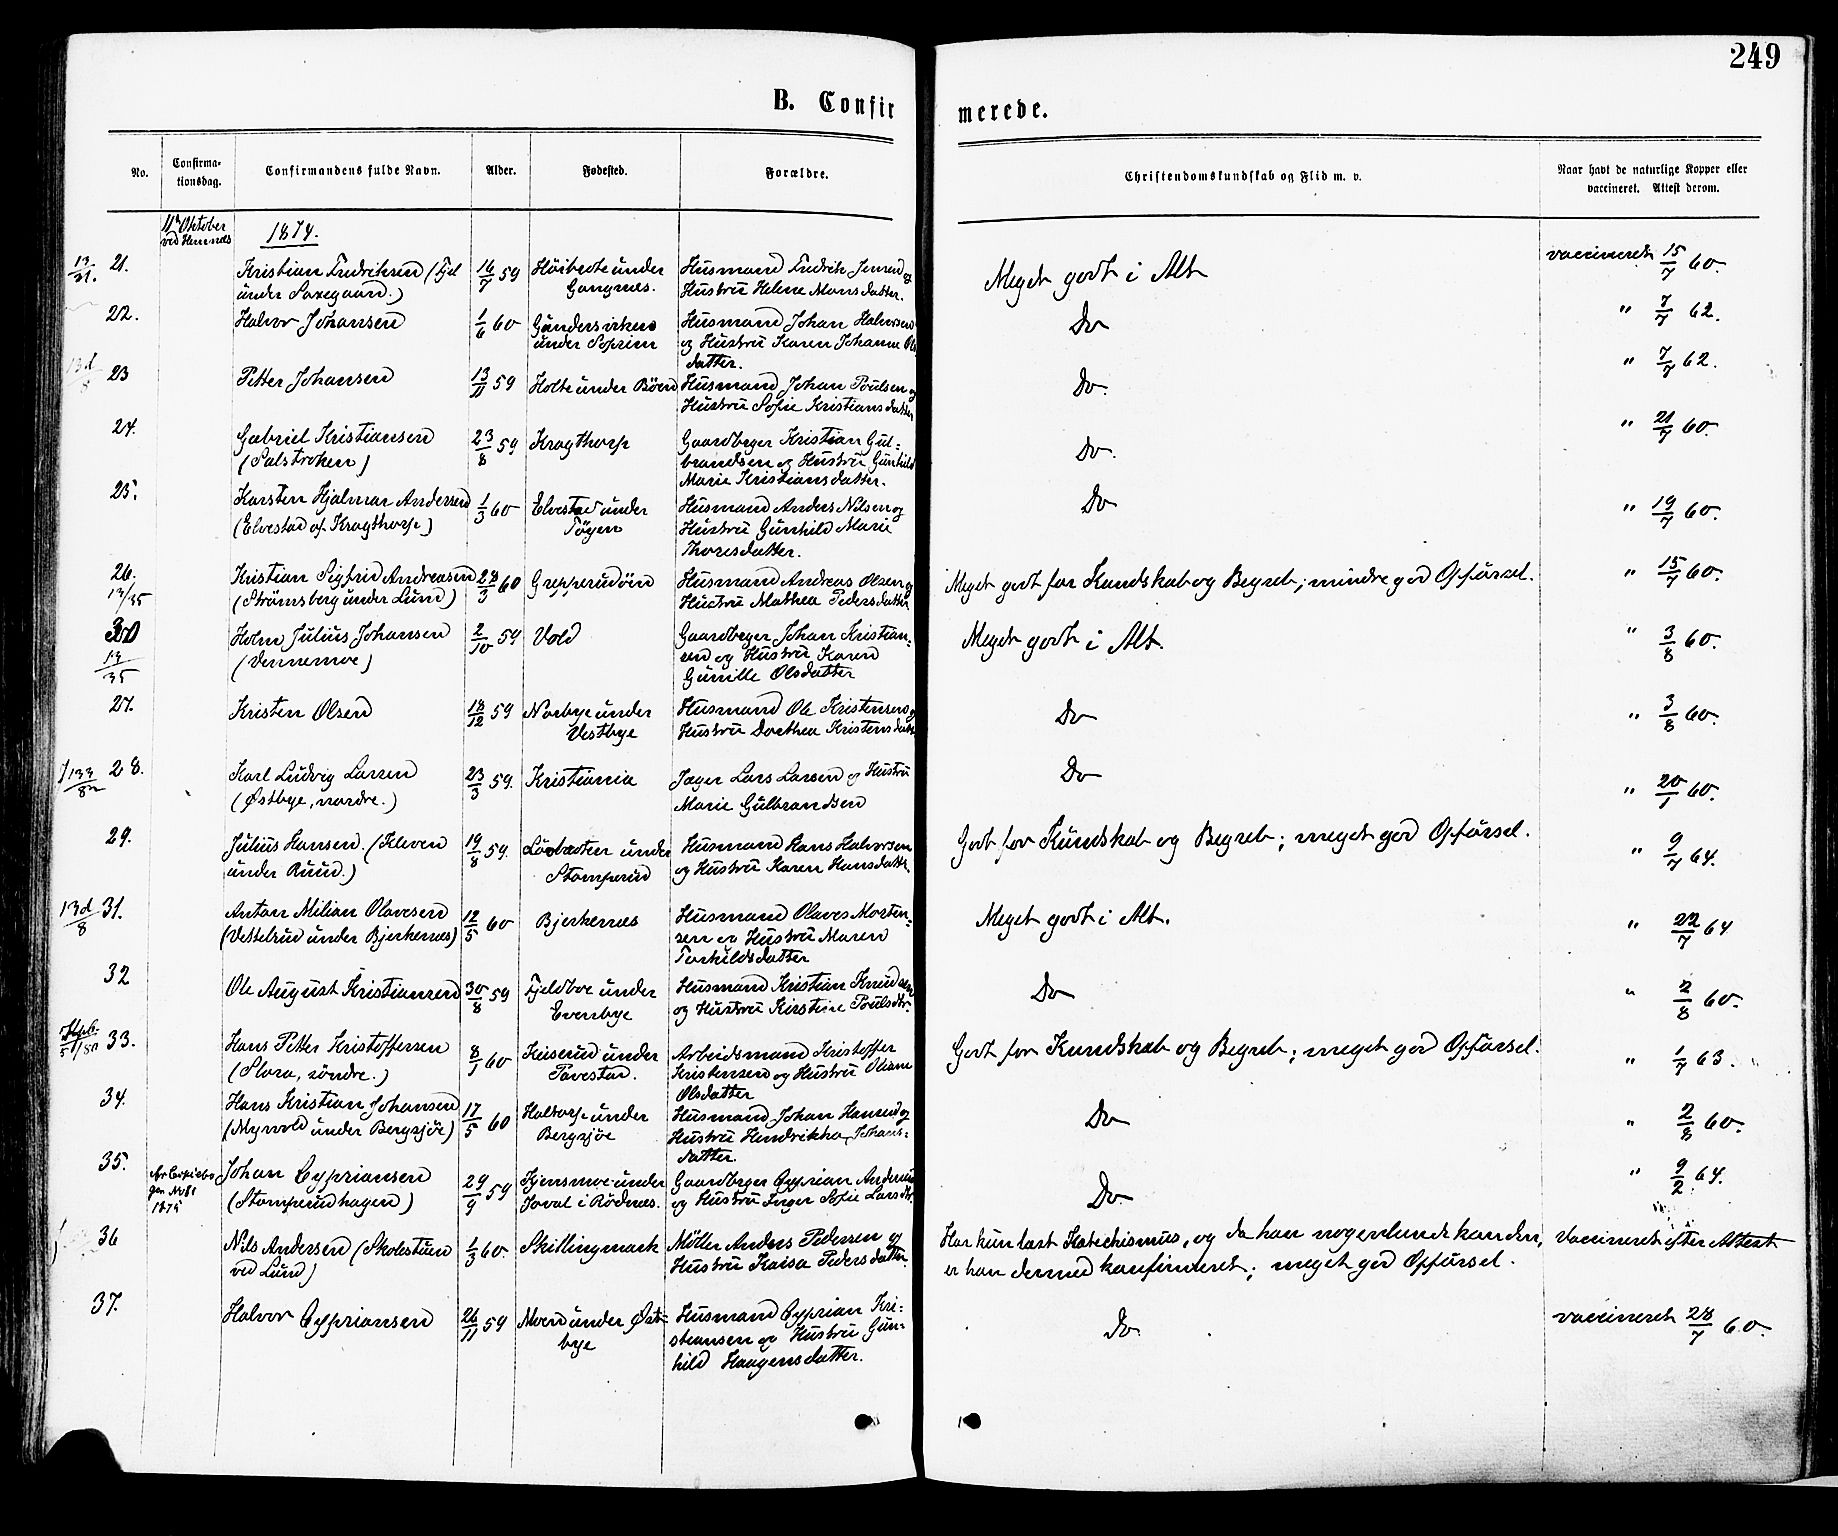 249
B. Confirmerede.
No. Confirmationsdag. Confirmandens fulde Navn. Alder. Fødested. Forældre. Christendomskundskab og Flid m. v. Naar havt de naturlige Kopper eller vaccineret. Attest derom.
11te Oktober ved Hemnæs 1874.
21. Kristian Fredriksen (Fjel 16/7 59 Høibraate under Husmand Fredrik Jensen og Meget godt i Alt vaccineret 15/7 60.
under Saxegaard.) Gangnæs. Hustru Helene Mons datter.
22. Halvor Johansen 1/6 60 under Soprim Husmand Johan Halvorsen Do " 7/7 62.
og Hustru Karen Johanne Ols
datter.
23 Petter Johansen 13/11 59 Holte under Bøen Husmand Johan Poulsen og Do. " 7/7 62.
Hustru Sofie Kristians datter
24. Gabriel Kristiansen 23/8 59 Kragthorp Gaardbryger Kristian Gul= Do. " 21/7 60.
(Salstroken) brandsen og Hustru Gunhild
Marie Kristiansdatter.
25. Karsten Hjalmar Andersen 1/3 60 Elvestad under Husmand Anders Nilsen og Do " 19/7 60.
(Elvestad af Kragthorp) Tøyen Hustru Gunhild Marie
Thoresdatter.
26. Kristian Sigfrid Andreasen 28/3 60 Grepperudøen Husmand Andreas Olsen og Meget godt for Kundskab og Begreb; mindre god Opførsel. " 15/7 60.
13/35 (Strømsberg under Lund) Hustru Mathea Pedersdatter
30 Holm Julius Johansen 2/10 59 Vold Gaardbryger Johan Kristian= Meget godt i Alt. " 3/8 60.
13/35 (Vennemoe) sen og Hustru Karen
Gunille Olsdatter
27. Kristen Olsen 18/12 59 Norbye under Husmand Ole Kristensen og Do " 3/8 60.
Vestbye Hustru Dorthea Kristens datter
28. Karl Ludvig Larsen 23/3 59. Kristiania Jæger Lars Larsen og Hustru Do " 20/1 60.
(Østbye, nordre.) Marie Gulbrandsen
29. Julius Hansen. (Kleven 19/8 59. Løvbroten under Husmand Hans Halvorsen Godt for Kundskab og Begreb; meget god Opførsel. " 9/7 64.
under Ruud.) Stomperud og Hustru Karen Hansdatter.
13d/8 31. Anton Milian Olavesen 12/5 60 Bjerkenæs Husmand Olaves Morten= Meget godt i Alt. " 22/7 64
(Vettelrud under Bjerkenæs) sen og Hustru Maren
Torkildsdatter
32 Ole August Kristiansen 30/8 59 Fjeldboe under Husmand Kristian Knudsen Do " 2/8 60.
Evenbye og Hustru Kirstine Poulsdtr.
33. Hans Petter Kristoffersen 8/1 60 Keiserud under Arbeidsmand Kristoffer Godt for Kundskab og Begreb; meget god Opførsel. " 1/7 63.
(Slora, søndre.) Tavestad. Kristensen og Hustru Oliane
Olsdatter
34. Hans Kristian Johansen 17/5 60 Haltorp under Husmand Johan Hansen og Do " 2/8 60.
(Myrvold under Bergsjøe) Bergsjøe Hustru Hendrikka Johans=
datter.
35. Johan Cypriansen 29/9 59 Kjensmoe under Gaardbryger Cyprian Andersen Do " 9/2 64.
1875 (Stomperudhagen) Joval i Rødnæs. og Hustru Inger Sofie Larsdtr.
36 Nils Andersen (Skolestuen 1/3 60. Skillingmark Møller Anders Pedersen og Har kun læst Katechismus, og da han nogenlunde kan den, Vaccineret efter Attest
ved Lund) Hustru Kaisa Pedersdatter. er han dermed konfirmeret; meget god Opførsel.
37. Halvor Cypriansen 26/11 59 Moen under Øst= Husmand Cyprian Kri= Do vaccineret 28/7 60.
bye stiansen og Hustru Gun=
hild Haagensdatter.